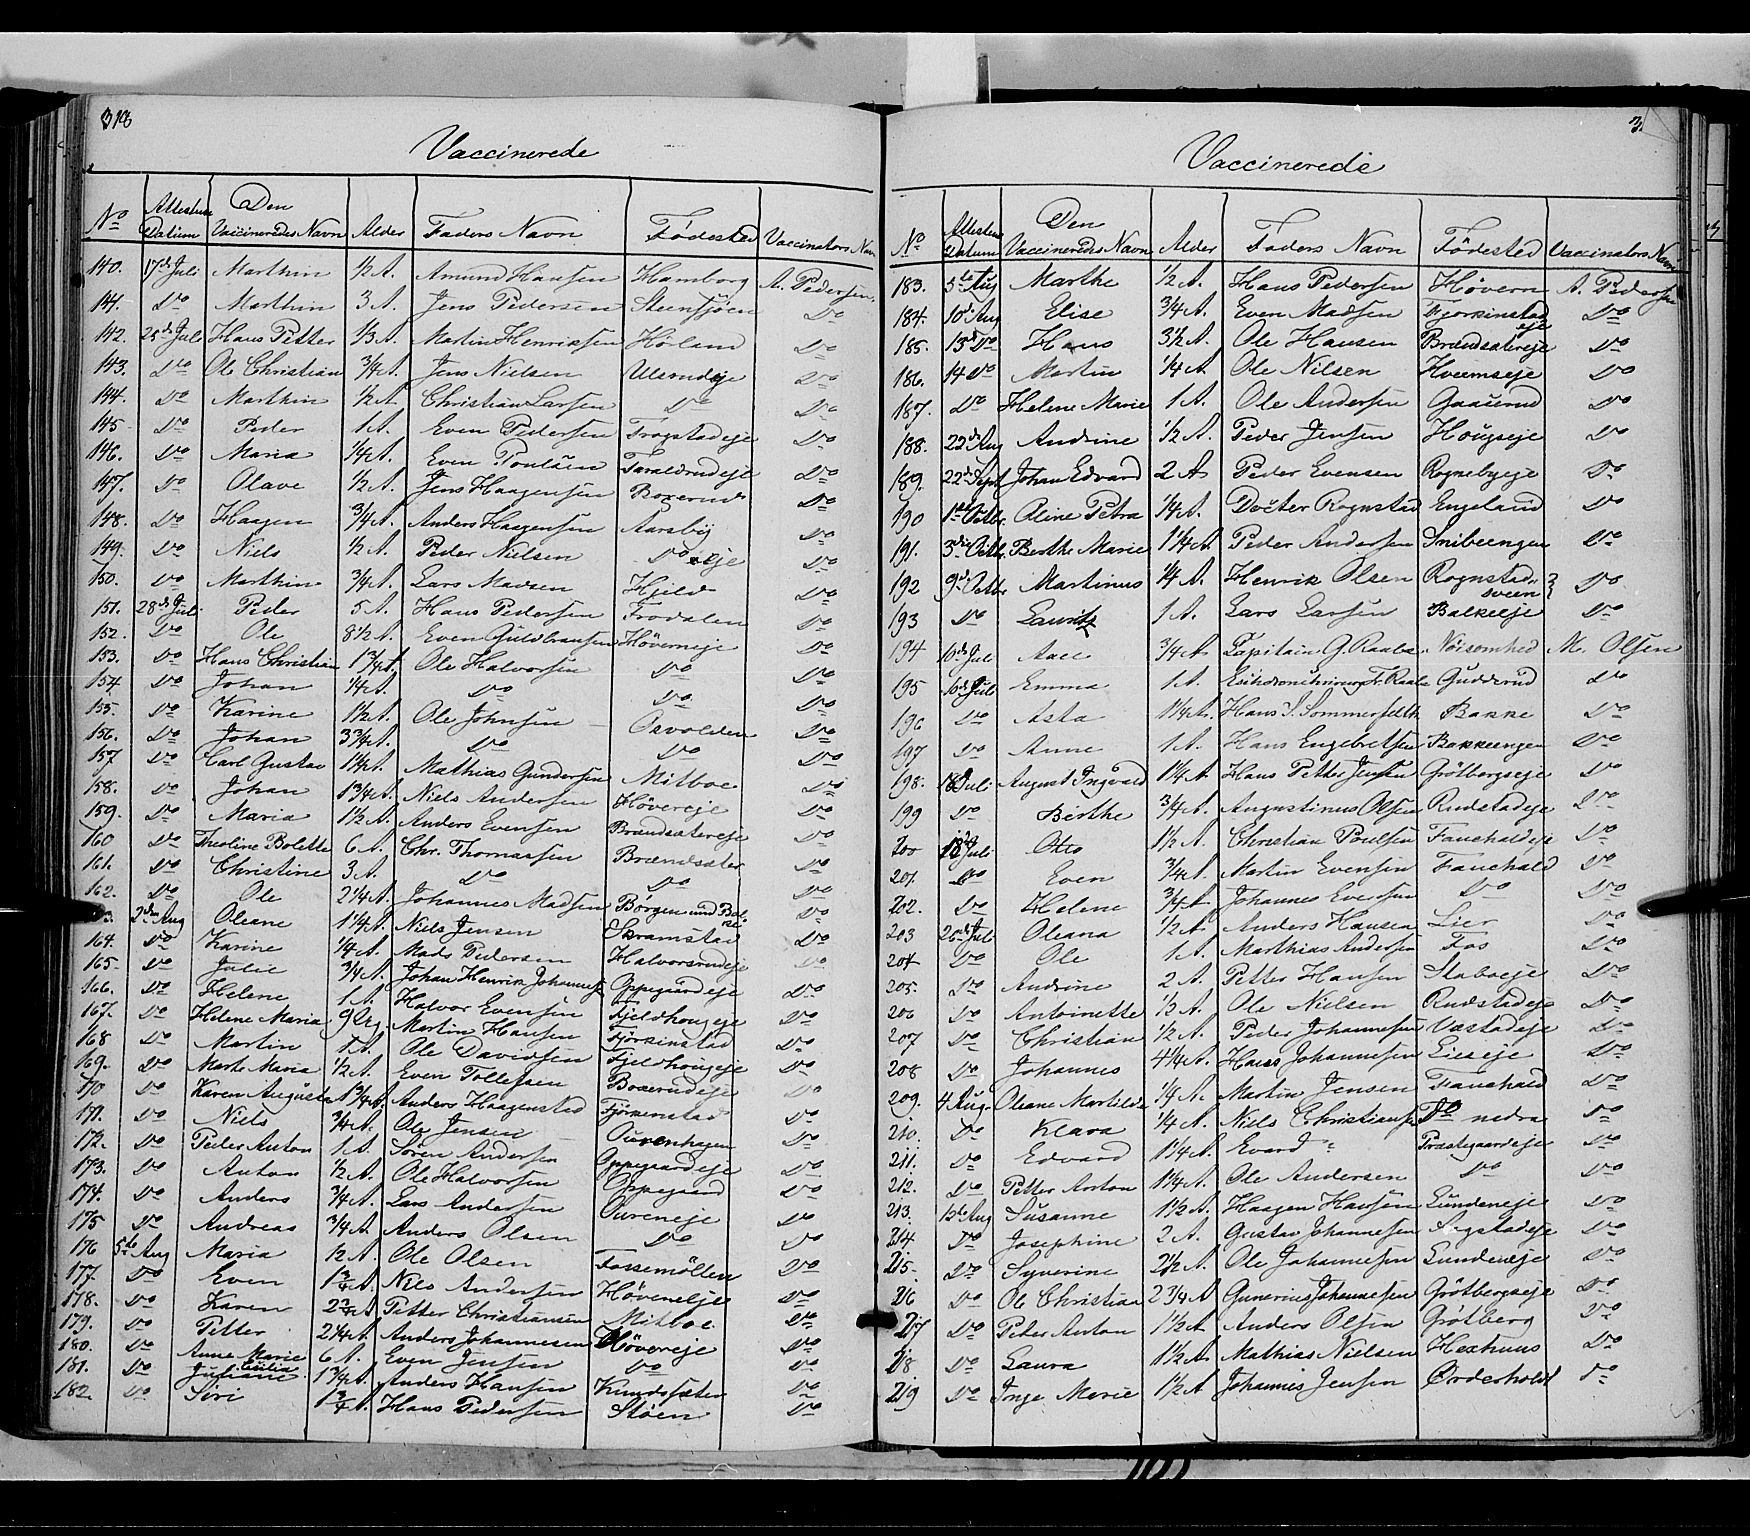 318
Vaccinerede
No Attestens Datum Den Vaccineredes Navn Alder Faders Navn Fødested Vaccinators Navn
140. 17de Juli Marthin 1/2 A. Amund Hansen Hamborg A. Pedersen
141. Do Marthin 3 A. Jens Pedersen Steensjöen Do
142. 25de Juli Hans Petter 1/3 A. Martin Henriksen Hölend Do
143. Do Ole Christian 3/4 A. Jens Nielsen Ulsrudeje Do
144. Do Marthin 1/2 A Christian Larsen Do Do
145. Do Peder 1 A. Even Pedersen Trogstadeje Do
146. Do Maria 1/4 A. Even Poulsen Taraldrudeje Do
147. Do Olave 1/2 A. Jens Haagensen Boxerud Do
148. Do Haagen 3/4 A. Anders Haagensen Aarsby Do
149. Do Niels 1/2 A. Peder Nielsen Do eje Do
150. Do Marthin 3/4 A. Lars Madsen Hjeld Do
151. 28de Juli Peder 5 A. Hans Pedersen Frodalen Do
152. Do Ole 8 1/2 A. Even Guldbransen Höverneje Do
153. Do Hans Christian 1 3/4 A. Ole Halvorsen Do Do
154. Do Johan 1/4 A. Do Do Do
155. Do Karine 1 1/2 A. Ole Johnsen Osvolden Do
156. Do Johan 3 3/4 A. Do Do Do
157 Do Karl Gustav 1 1/4 A. Mathias Gundersen Mitboe Do
158. Do Johan 1 3/4 A. Niels Andersen Hövereje Do
159. Do Maria 1 1/2 A. Anders Evensen Brændsætereje Do
160 Do Theoline Bolette 6 A. Chr. Thomassen Brændsæter Do
161. Do Christine 3 A. Do Do
162. Do Ole 2 1/4 A. Johannes Madsen Börgen Do
163. 2den Aug Oleane 1 1/4 A. Niels Jensen Skramstad Do
164. Do Karine 1/4 A. Mads Pedersen Halvorsrudeje Do
165. Do Julie 3/4 A. Johan Henrik Johannes Oppegaardeje Do
166. Do Helene 1 A. Halvor Evensen Fjeldhougeje Do
167. Do Helene Maria 9 Martin Hansen Fjörkinstad Do
168 Do Martin 1 A. Ole Davidsen Fjeldhougeje Do
169. Do Marte Maria 1/2 A. Even Tollefsen Boxerudeje Do
170 Do Karen Augusta 1 3/4 A. Anders Haagenstad Fjörkenstad Do
171. Do Niels 3/4 A. Ole Jensen Ourenhagen Do
172. Do Peder Anton 1 A. Sören Andersen Oppegaardeje Do
173. Do Anton 1/2 A. Ole Halvorsen Oppegaard Do
174. Do Anders 3/4 A. Lars Andersen Oureneje Do
175 Do Andreas 3/4 A. Anders Olsen Do Do
176 5te Aug Maria 1/2 A. Ole Olsen Fossemöllen Do
177. Do Even 1 3/4 A. Niels Andersen Höverneje Do
178. Do Karen 2 3/4 A Petter Christiansen Mitboe Do
179. Do Petter 2 1/4 A. Anders Johannesen Hövereje Do
180. Do Anne Marie Cecilia 6 A. Even Jensen Do Do
181. Do Juliane 1 3/4 A. Anders Hansen Knudsæter Do
182. Do Siri 1 3/4 A. Hans Pedersen Stöen Do
3
Vaccinerede
No Attestens Datum Den Vaccineredes Navn Alder Faders Navn Födested Vaccinators Navn
183. 5te Aug Marthe 1/2 A. Hans Pedersen Hövern A. Pedersen
184. 10de Aug Elise 3/4 A. Even Madsen Fjorkinstad eje Do
185. 13de Do Hans 3 1/2 A. Ole Hansen Brændsætereje Do
186. 14 Do Martin 1/4 A Ole Nilsen Hveemseje Do
187. Do Helene Marie 1 A. Ole Andersen Gaaserud Do
188. 22de Aug Andrine 1/2 A. Peder Jensen Hougseje Do
189. 22de Sept Johan Edvard 2 A Peder Evensen Rognebyeje Do
190 1ste Octbr. Oline Petra 1/4 A. Docter Rognstad Engelund Do
191. 3die Octbr. Berthe Marie 1 1/4 A. Peder Andersen Snibeengen Do
192 9de Octbr. Martinus 1/4 A. Henrik Olsen Rognstad sveen Do
193 Do Lauritz 1 A. Lars Larsen Balkeeje Do
194 16de Juli Aace 3/4 A Capitain G. Raabe Nöisomhed M. Olsen
195 16de Juli Emma 1 A. Fr. Raabe Gudderud Do
196 Do Asta 1 1/4 A. Hans S. Sommerfeldt Bakke Do
197 Do Anne 1 A. Hans Engebretsen Bakkeengen Do
198. 18 Juli August Ingvald 1 1/4 A Hans Petter Jensen Grötbergseje Do
199 Do Berthe 3/4 A. Augustinus Olsen Rudstadeje Do
200 18de Juli Otto 1 1/2 A. Christian Poulsen Fauchaldeje Do
201. Do Even 3/4 A. Martin Evensen Fauchald Do
202. Do Helene 3/4 A Johannes Evensen Do Do
203 26de Juli Oleana 1/2 A. Anders Hansen Lier Do
204 Do Ole 1 A. Marthias Andersen Fos Do
205. Do Andrine 2 A. Petter Hansen Staboeje Do
206 Do Antoinette 1/3 A. Ole Nielsen Rudstadeje Do
207 Do Christian 1/2 A. Peder Johannesen Vestadeje Do
208 Do Johannes 4 1/4 A. Hans Johannesen Lieeje Do
209. 4 Aug. Oleane Martilde 1/4 A. Martin Jensen Fauchald Do
210. Do Klara 1/4 A. Niels Christiansen Do nedre Do
211. Do Edvard 1 1/4 A. Evard Præstegaardeje Do
212. Do Petter Anton 1 1/4 A. Ole Andersen Do Do
213. 12te Aug Susanne 1 1/2 A. Haagen Hansen Lundeneje Do
214 Do Josephine 2 A. Gustav Johannesen Do
215. Do Syverine 2 1/2 A. Ole Johannesen Lundeneje Do
216 Do Ole Christian 2 3/4 A Gunerius Johannesen Grötbergseje Do
217 Do Peter Anton 1 1/2 A Anders Olsen Grötberg Do
218 Do Laura 1 1/2 A. Mathias Nielsen Hexhuus Do
219 Do Inge Marie 1 1/2 A Johannes Jensen Orderholdt Do